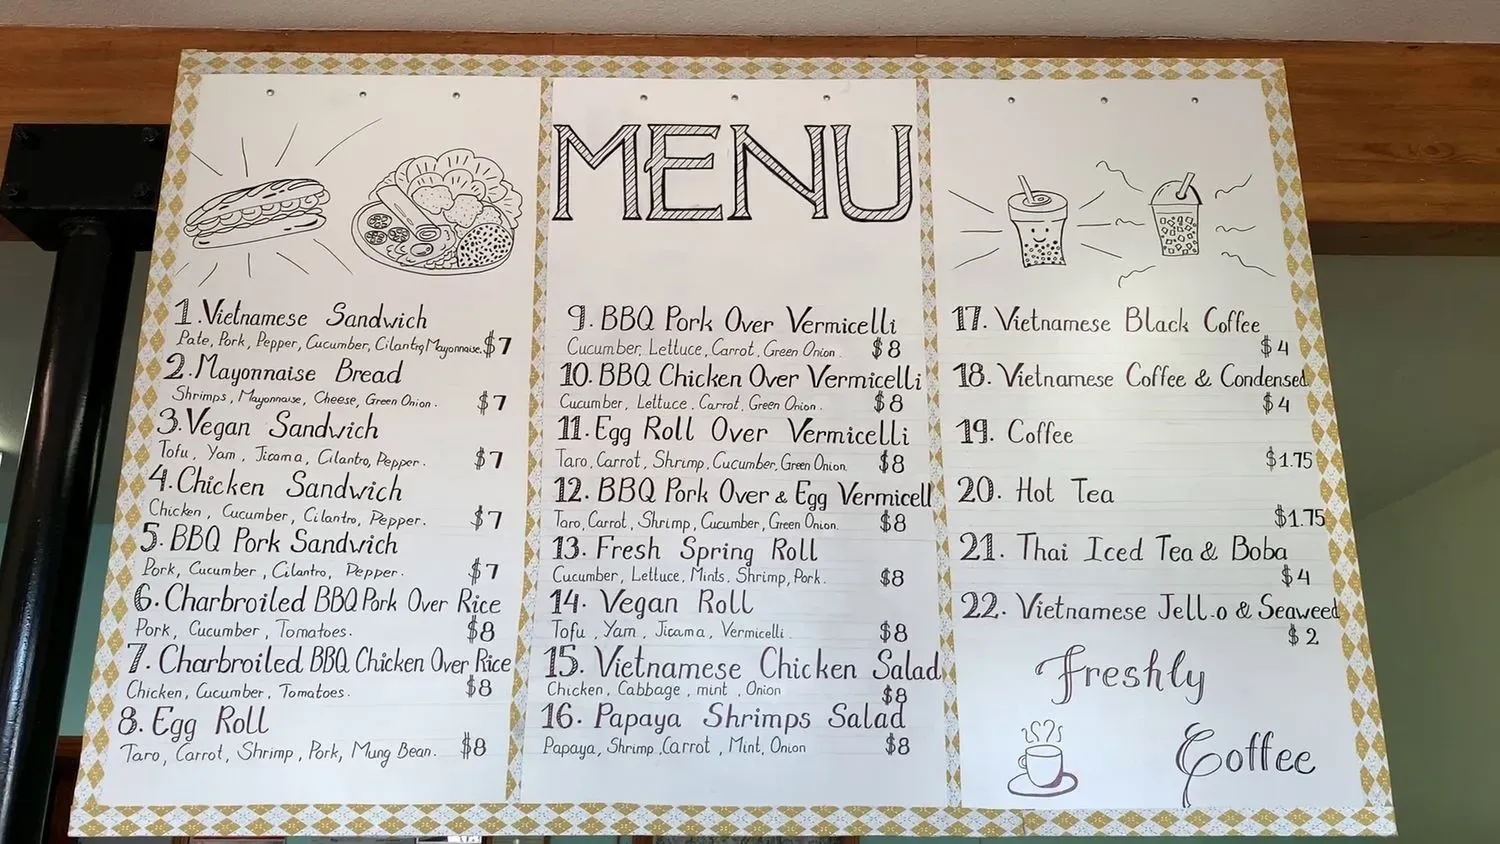 MENU
1. Vietnamese Sandwich
Pate, Pork, Pepper, Cucumber, Cilantro, Mayonnaise. $7
2. Mayonnaise Bread
Shrimps, Mayonnaise, Cheese, Green Onion. $7
3. Vegan Sandwich
Tofu, Yam, Jicama, Cilantro, Pepper. $7
4. Chicken Sandwich
Chicken, Cucumber, Cilantro, Pepper. $7
5. BBQ Pork Sandwich
Pork, Cucumber, Cilantro, Pepper. $7
6. Charbroiled BBQ Pork Over Rice
Pork, Cucumber, Tomatoes. $8
7. Charbroiled BBQ Chicken Over Rice
Chicken, Cucumber, Tomatoes. $8
8. Egg Roll
Taro, Carrot, Shrimp, Pork, Mung Bean. $8
9. BBQ Pork Over Vermicelli
Cucumber, Lettuce, Carrot, Green Onion. $8
10. BBQ Chicken Over Vermicelli
Cucumber, Lettuce, Carrot, Green Onion. $8
11. Egg Roll Over Vermicelli
Taro, Carrot, Shrimp, Cucumber, Green Onion. $8
12. BBQ Pork Over & Egg Vermicell
Taro, Carrot, Shrimp, Cucumber, Green Onion. $8
13. Fresh Spring Roll
Cucumber, Lettuce, Mints, Shrimp, Pork. $8
14. Vegan Roll
Tofu, Yam, Jicama, Vermicelli. $8
15. Vietnamese Chicken Salad
Chicken, Cabbage, mint, Onion $8
16. Papaya Shrimps Salad
Papaya, Shrimp, Carrot, Mint, Onion $8
17. Vietnamese Black Coffee
$4
18. Vietnamese Coffee & Condensed
$4
19. Coffee
$1.75
20. Hot Tea
$1.75
21. Thai Iced Tea & Boba
$4
22. Vietnamese Jell-o & Seaweed
$2
Freshly
Coffee